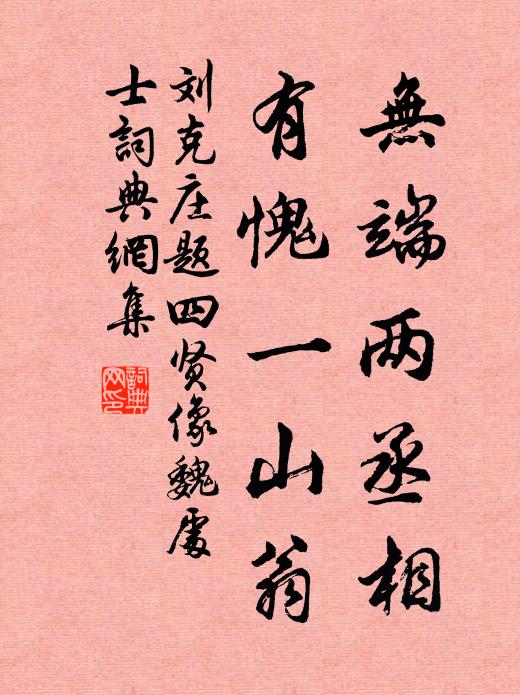 無端两丞相
有愧一山翁
刘克庄题四贤像魏處
士詞典網集
詞典
网印